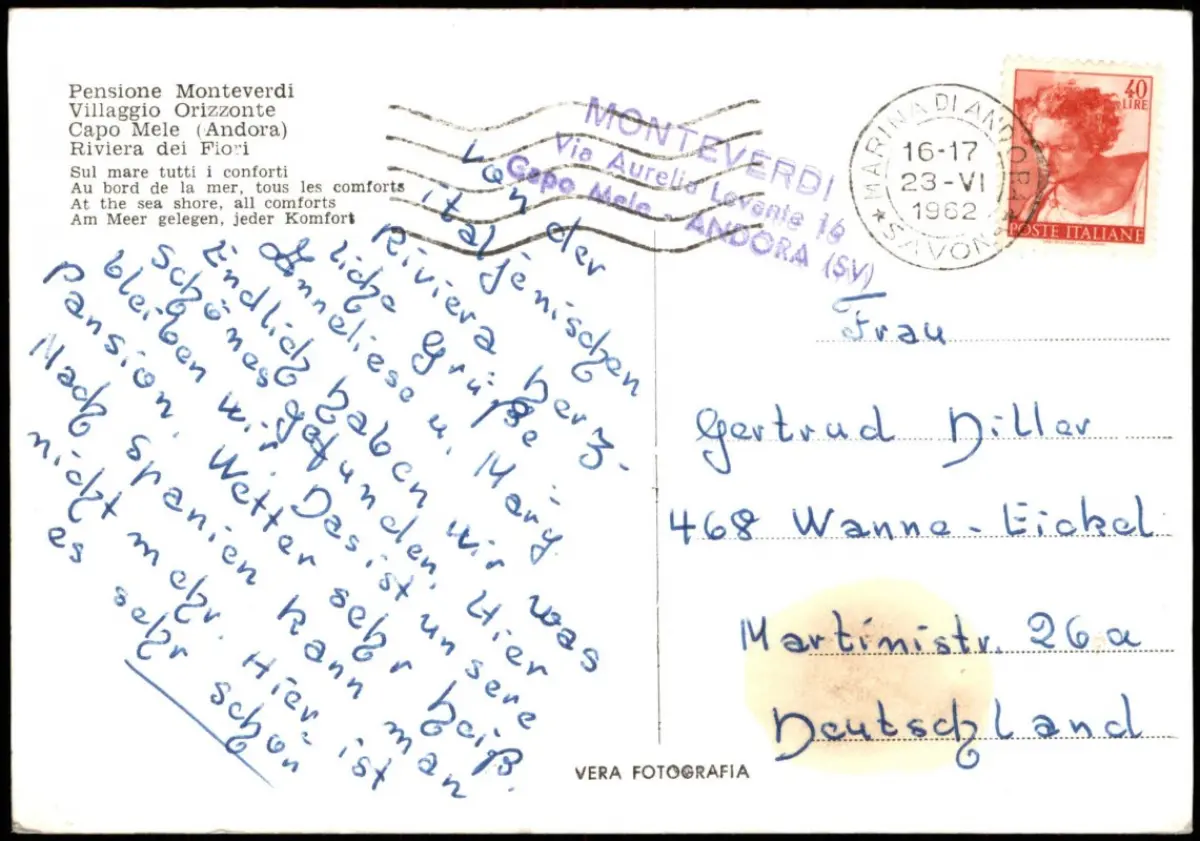 Pensione Monteverdi
Villaggio Orizzonte
Capo Mele (Andora)
Riviera dei Fiori
Sul mare tutti i conforti
Au bord de la mer, tous les comforts
At the sea shore, all comforts
Am Meer gelegen, jeder Komfort
MONTEVERDI
Via Aurelia Levante 16
Capo Mele - ANDORA (SV)
MARINA DI ANDORA
16-17
23-VI
1962
SAVONA
40
LIRE
POSTE ITALIANE
Von der
italjenischen
Riviera herz-
liche Grüße
Anneliese u. Märy.
Endlich haben wir was
schönes gefunden. Hier
bleiben wir. Das ist unsere
Pansion. Wetter sehr heiß.
Nach Spanien kann man
nicht mehr. Hier ist
es sehr schön
Frau
Gertrud Diller
468 Wanne-Eickel
Martinistr. 26a
Deutschland
VERA FOTOGRAFIA